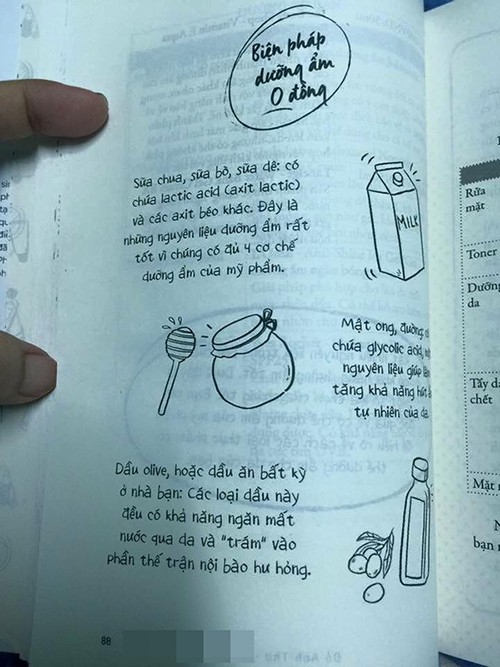 Biện pháp
dưỡng ẩm
0 đồng
Sữa chua, sữa bò, sữa dê: có
chứa lactic acid (axit lactic)
và các axit béo khác. Đây là
những nguyên liệu dưỡng ẩm rất
tốt vì chúng có đủ 4 cơ chế
dưỡng ẩm của mỹ phẩm.
MILK
Mật ong, đường
chứa glycolic acid,
nguyên liệu giúp
tăng khả năng hút
tự nhiên của da
Dầu olive, hoặc dầu ăn bất kỳ
ở nhà bạn: Các loại dầu này
đều có khả năng ngăn mất
nước qua da và "trám" vào
phần thế trận nội bào hư hỏng.
88
Rửa
mặt
Toner
Dưỡng
da
Tẩy da
chết
Mặt
bạn